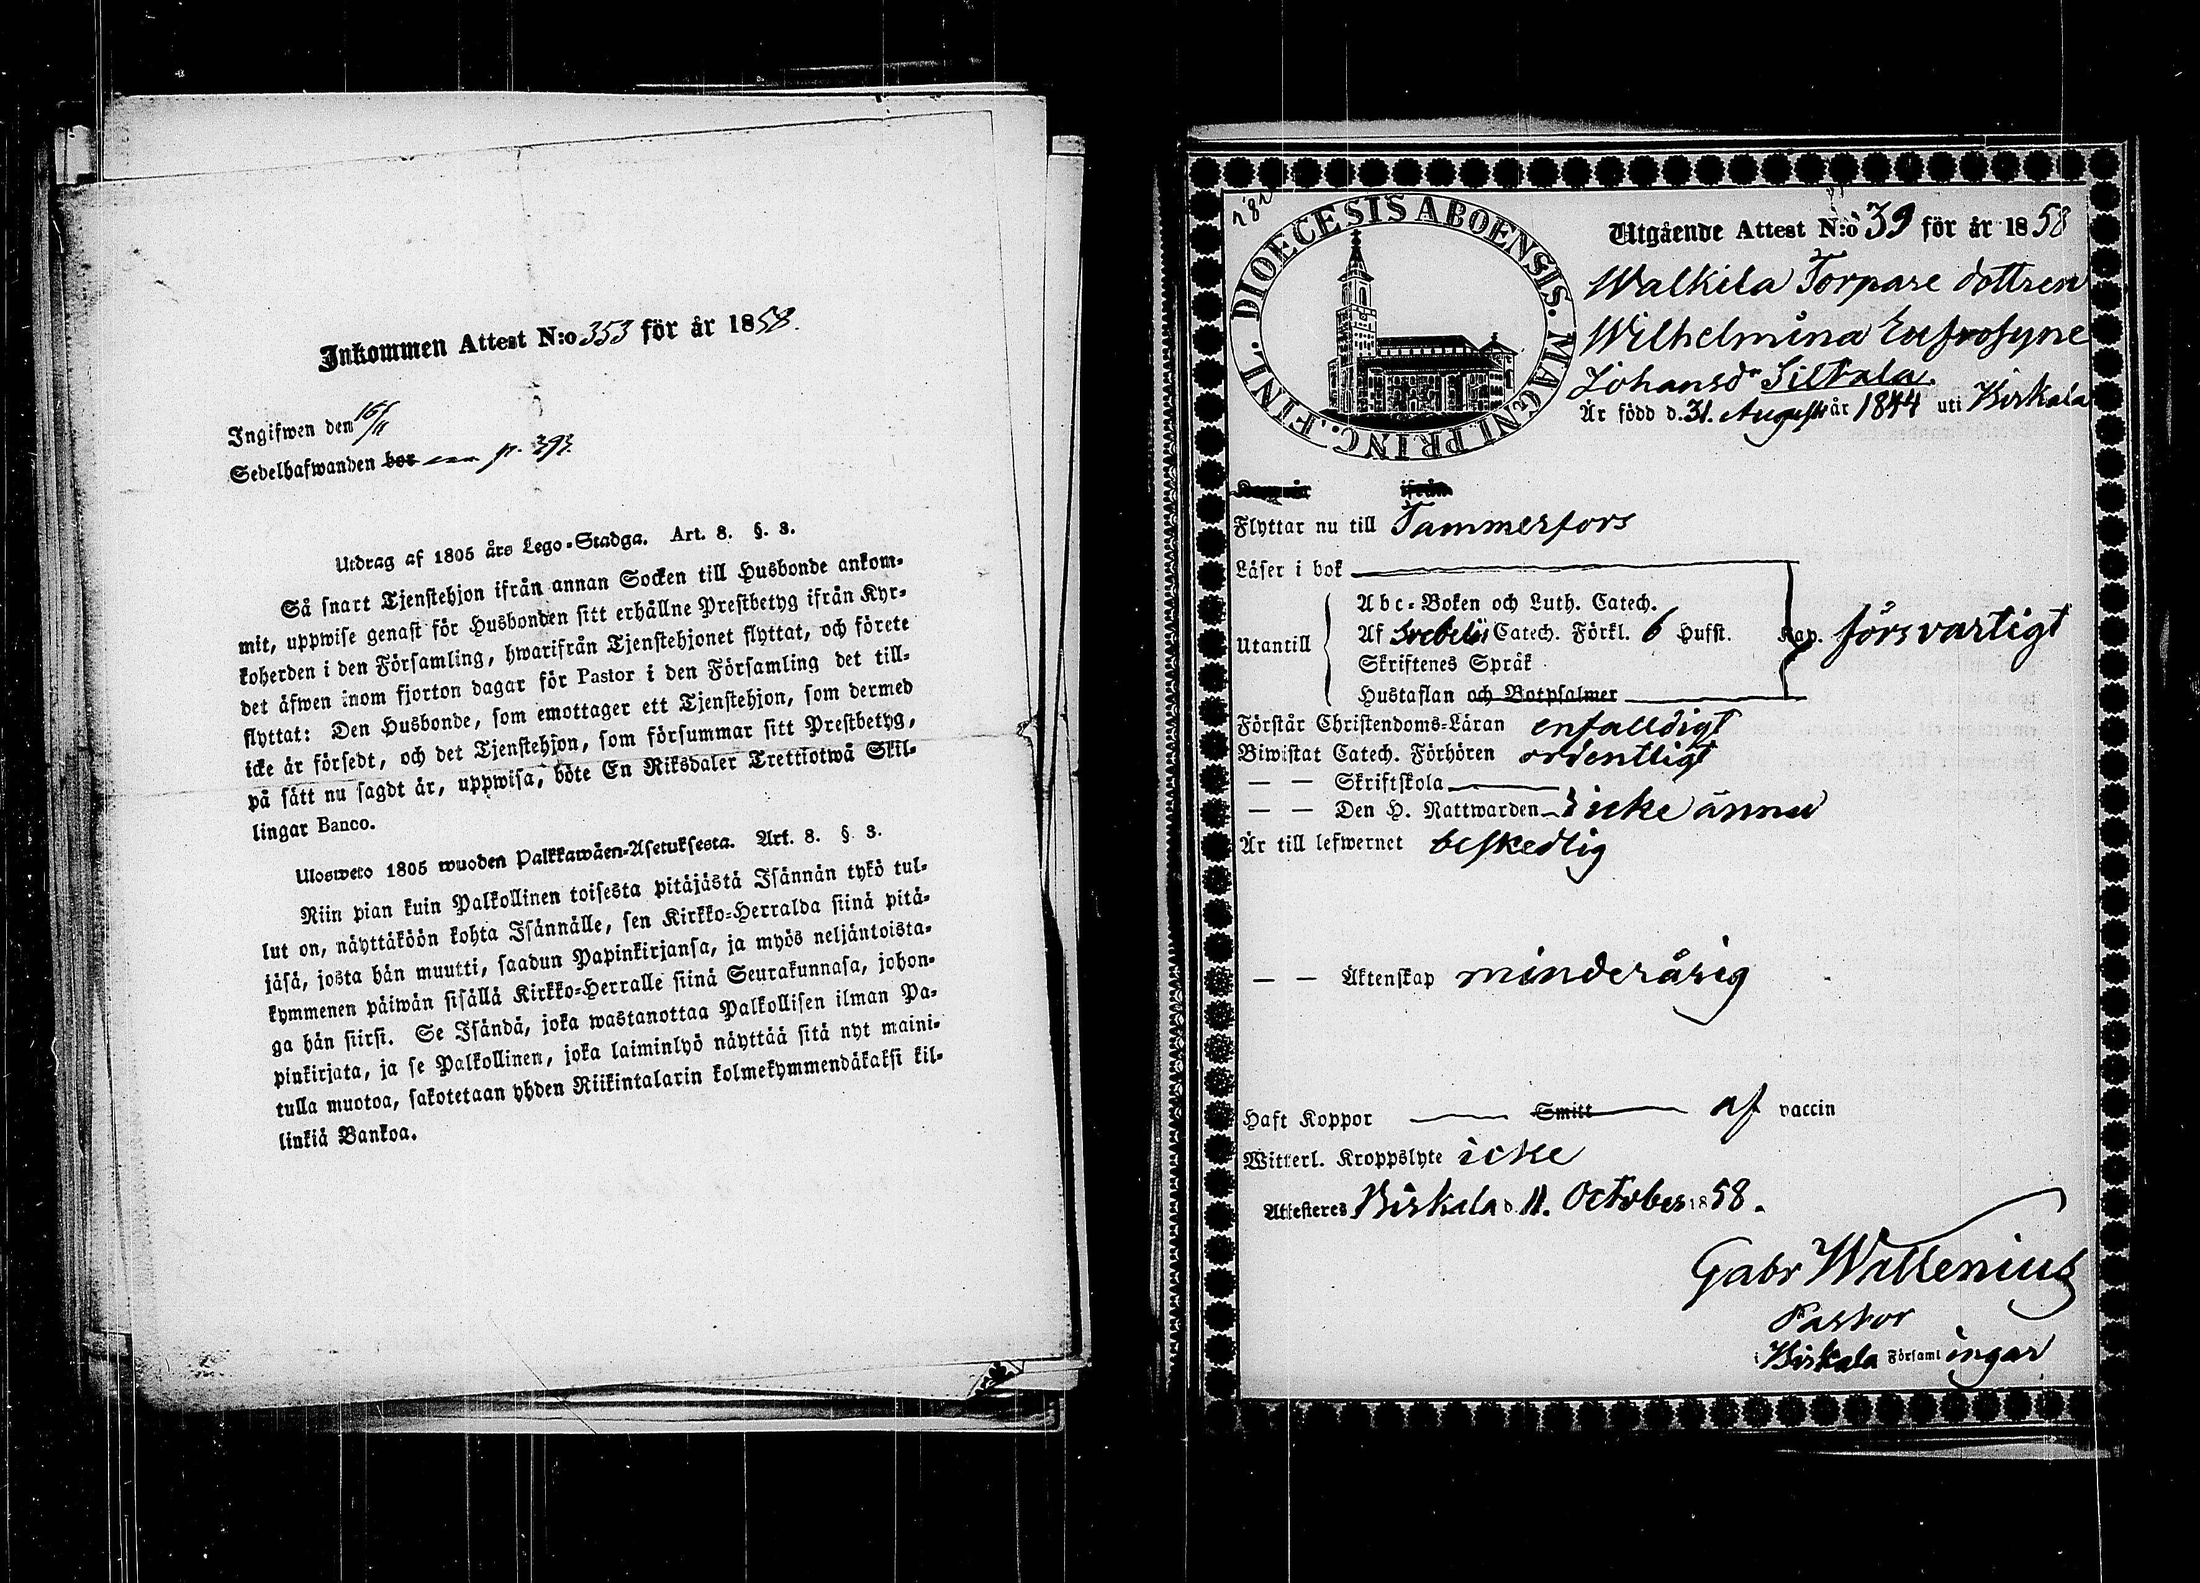 Inkommen Attest N:o 353 för år 1858.
Ingifwen den 16/11
Sedelhafwanden bor p. 393.
Utdrag af 1805 års Lego-Stadga. Art. 8. §. 3.
Så snart Tjenstehjon ifrån annan Socken till Husbonde ankom-
mit, uppwise genast för Husbonden sitt erhållne Prestbetyg ifrån Kyr-
koherden i den Församling, hwarifrån Tjenstehjonet flyttat, och förete
det äfwen inom fjorton dagar för Pastor i den Församling det till-
flyttat: Den Husbonde, som emottager ett Tjenstehjon, som dermed
icke är försedt, och det Tjenstehjon, som försummar sitt Prestbetyg,
på sätt nu sagdt är, uppwisa, böte En Riksdaler Trettiotwå Skil-
lingar Banco.
Ulosweto 1805 wuoden Palkkawäen-Asetuksesta. Art. 8. §. 3.
Niin pian kuin Palkollinen toisesta pitäjästä Isännän tykö tul-
lut on, näyttäköön kohta Isännälle, sen Kirkko-Herralda siinä pitä-
jäsä, josta hän muutti, saadun Papinkirjansa, ja myös neljäntoista-
kymmenen päiwän sisällä Kirkko-Herralle siinä Seurakunnasa, johon-
ga hän siirsi. Se Isändä, joka wastanottaa Palkollisen ilman Pa-
pinkirjata, ja se Palkollinen, joka laiminlyö näyttää sitä nyt maini-
tulla muotoa, sakotetaan yhden Riikintalarin kolmekymmendäkaksi kil-
linkiä Bankoa.
DIOECESIS ABOENSIS. MAGNI PRINC. FINL.
Utgående Attest N:o 39 för år 1858
Walkila Torpare dottren
Wilhelmina Eufrosyne
Johansdr Siltala.
Är född d. 31. Augusti år 1844 uti Birkala
ifrån
Flyttar nu till Tammerfors
Läser i bok
Utantill
Abc-Boken och Luth. Catech.
Af Svebelii Catech. Förkl. 6 Hufst. Kap. försvarligt
Skriftenes Språk
Hustaflan och Botpsalmer
Förstår Christendoms-Läran enfalldigt
Biwistat Catech. Förhören ordentligt
— — Skriftskola
— — Den H. Nattwarden icke ännu
Är till lefwernet beskedlig
— — Äktenskap minderårig
Haft Koppor Smitt af vaccin
Witterl. Kroppslyte icke
Attesteres Birkala d. 11. October 1858.
Gabr Wallenius
Pastor
i Birkala Församlingar